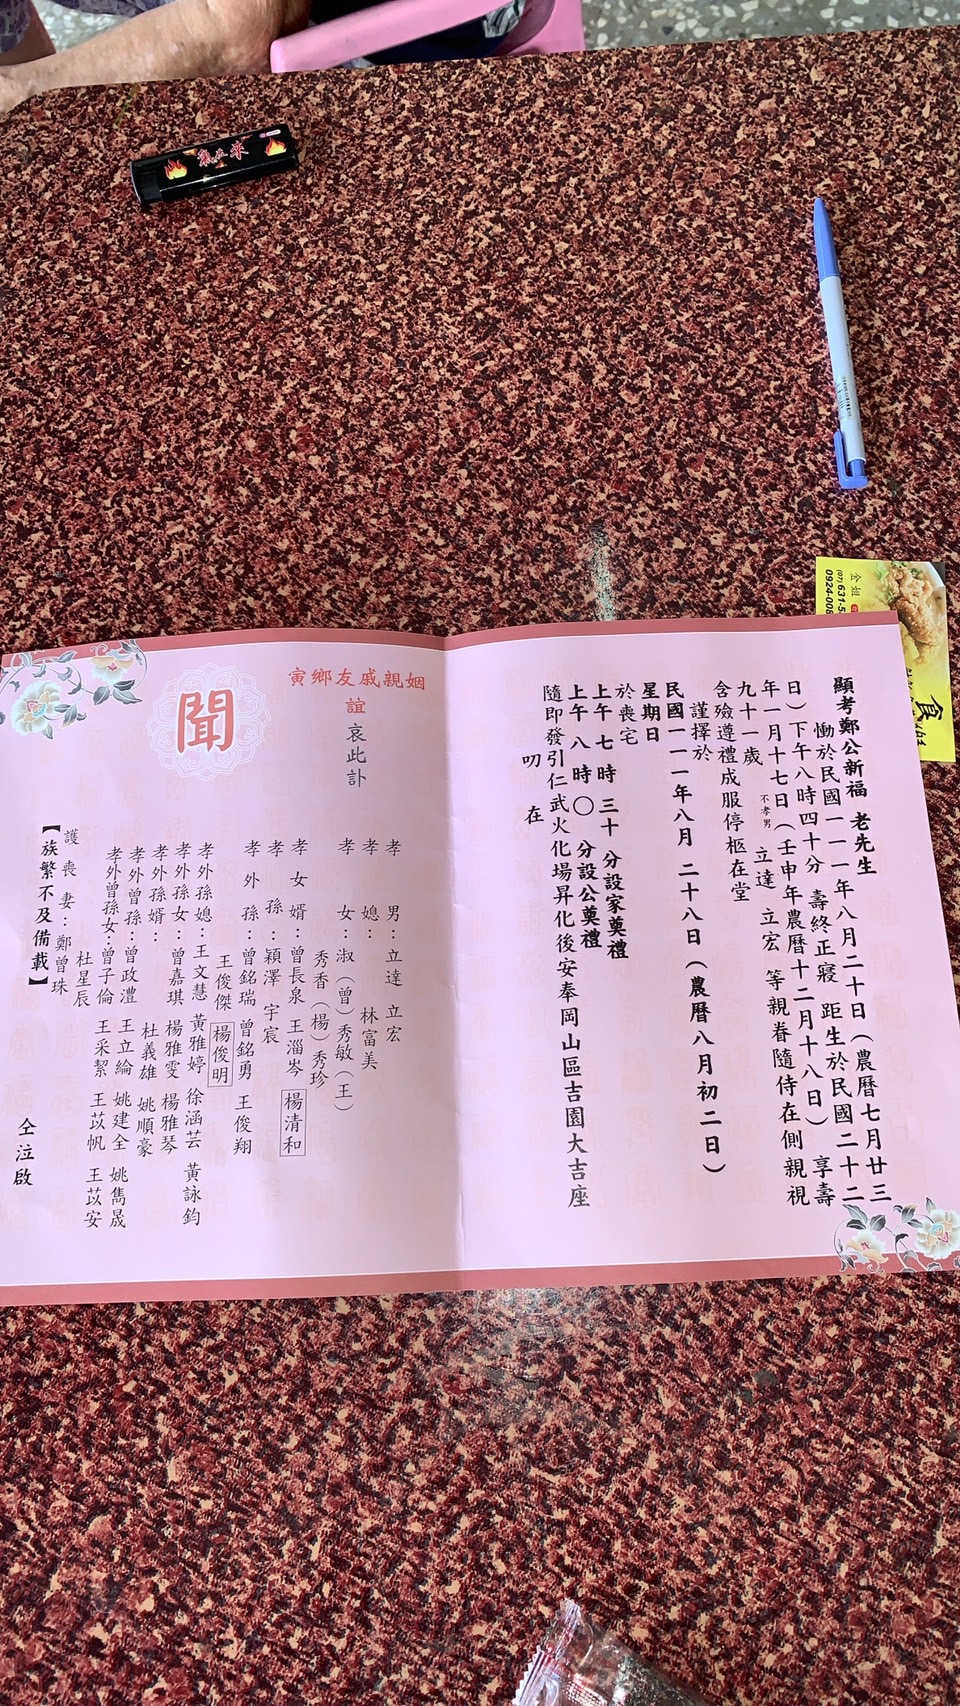 顯考鄭公新福 老先生
慟於民國一一一年八月二十日（農曆七月廿三
日）下午八時四十分 壽終正寢 距生於民國二十二
年一月十七日（壬申年農曆十二月十八日） 享壽
九十一歲 不孝男 立達 立宏 等親眷隨侍在側 親視
含殮遵禮成服停柩在堂
謹擇於
民國一一一年八月 二十八日（農曆八月初二日）
星期日
於喪宅
上午 七 時 三十 分設家奠禮
上午 八 時 〇 分設公奠禮
隨即發引仁武火化場昇化後安奉岡山區吉園大吉座
叨 在
姻親戚友鄉寅
誼 哀此訃
聞
孝 男：立達 立宏
孝 媳： 林富美
孝 女：淑（曾）秀敏（王）
秀香（楊）秀珍
孝 女 婿：曾長泉 王淄岑 楊清和
孝 孫：穎澤 宇宸
孝 外 孫：曾銘瑞 曾銘勇 王俊翔
王俊傑 楊俊明
孝外孫媳：王文慧 黃雅婷 徐涵芸 黃詠鈞
孝外孫女：曾嘉琪 楊雅雯 楊雅琴
孝外孫婿： 杜義雄 姚順豪
孝外曾孫：曾政澧 王立綸 姚建全 姚雋晟
孝外曾孫女：曾子倫 王采絜 王苡帆 王苡安
杜星辰
護 喪 妻：鄭曾珠
【族繁不及備載】
仝 泣 啟
金姐
(07)631-5
0924-008
食